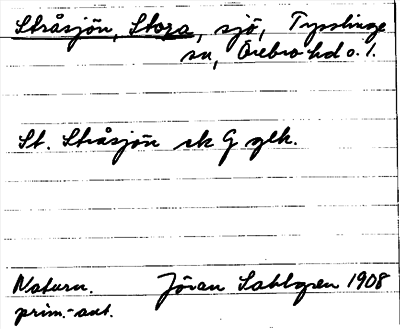 Stråsjön, Stora, sjö, Tysslinge
sn, Örebro hd o. l.
St. Stråsjön rk G glk.
Naturn. Jöran Sahlgren 1908
prim.-ant.